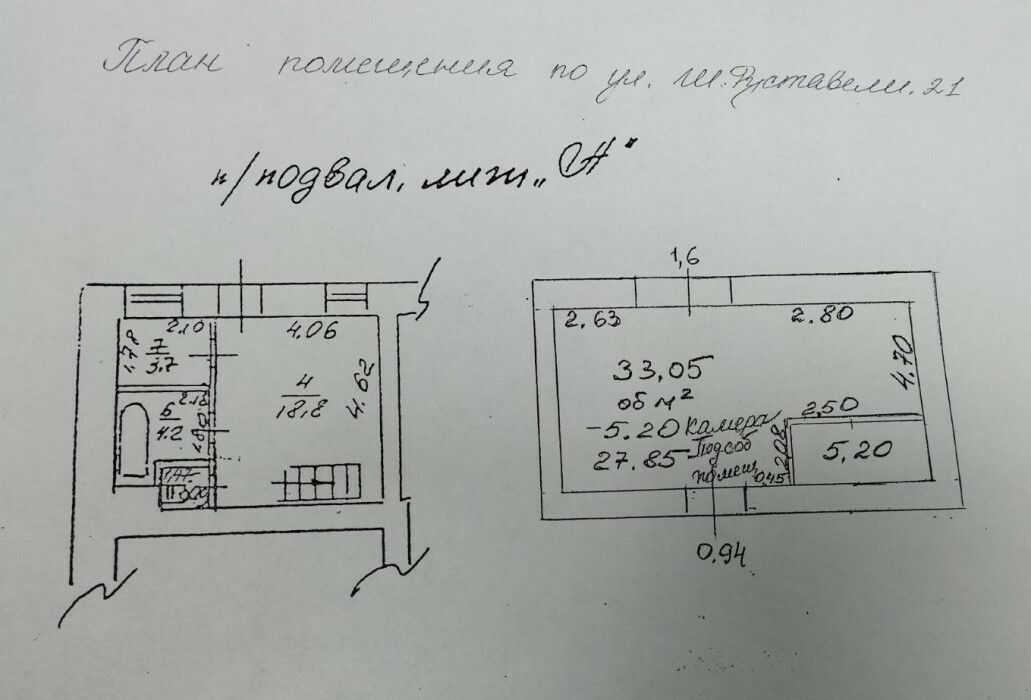 План помещения по ул. Ш. Руставели. 21
п/подвал, лит. „Н"
2.10
4.06
1.78
7
3.7
4
18,8
4.62
2.18
6
4.2
1,6
2.63
2.80
33,05
об м²
4.70
-5.20 камера
2.50
27.85 Подсоб помещ
2.08
5,20
0.45
0.94